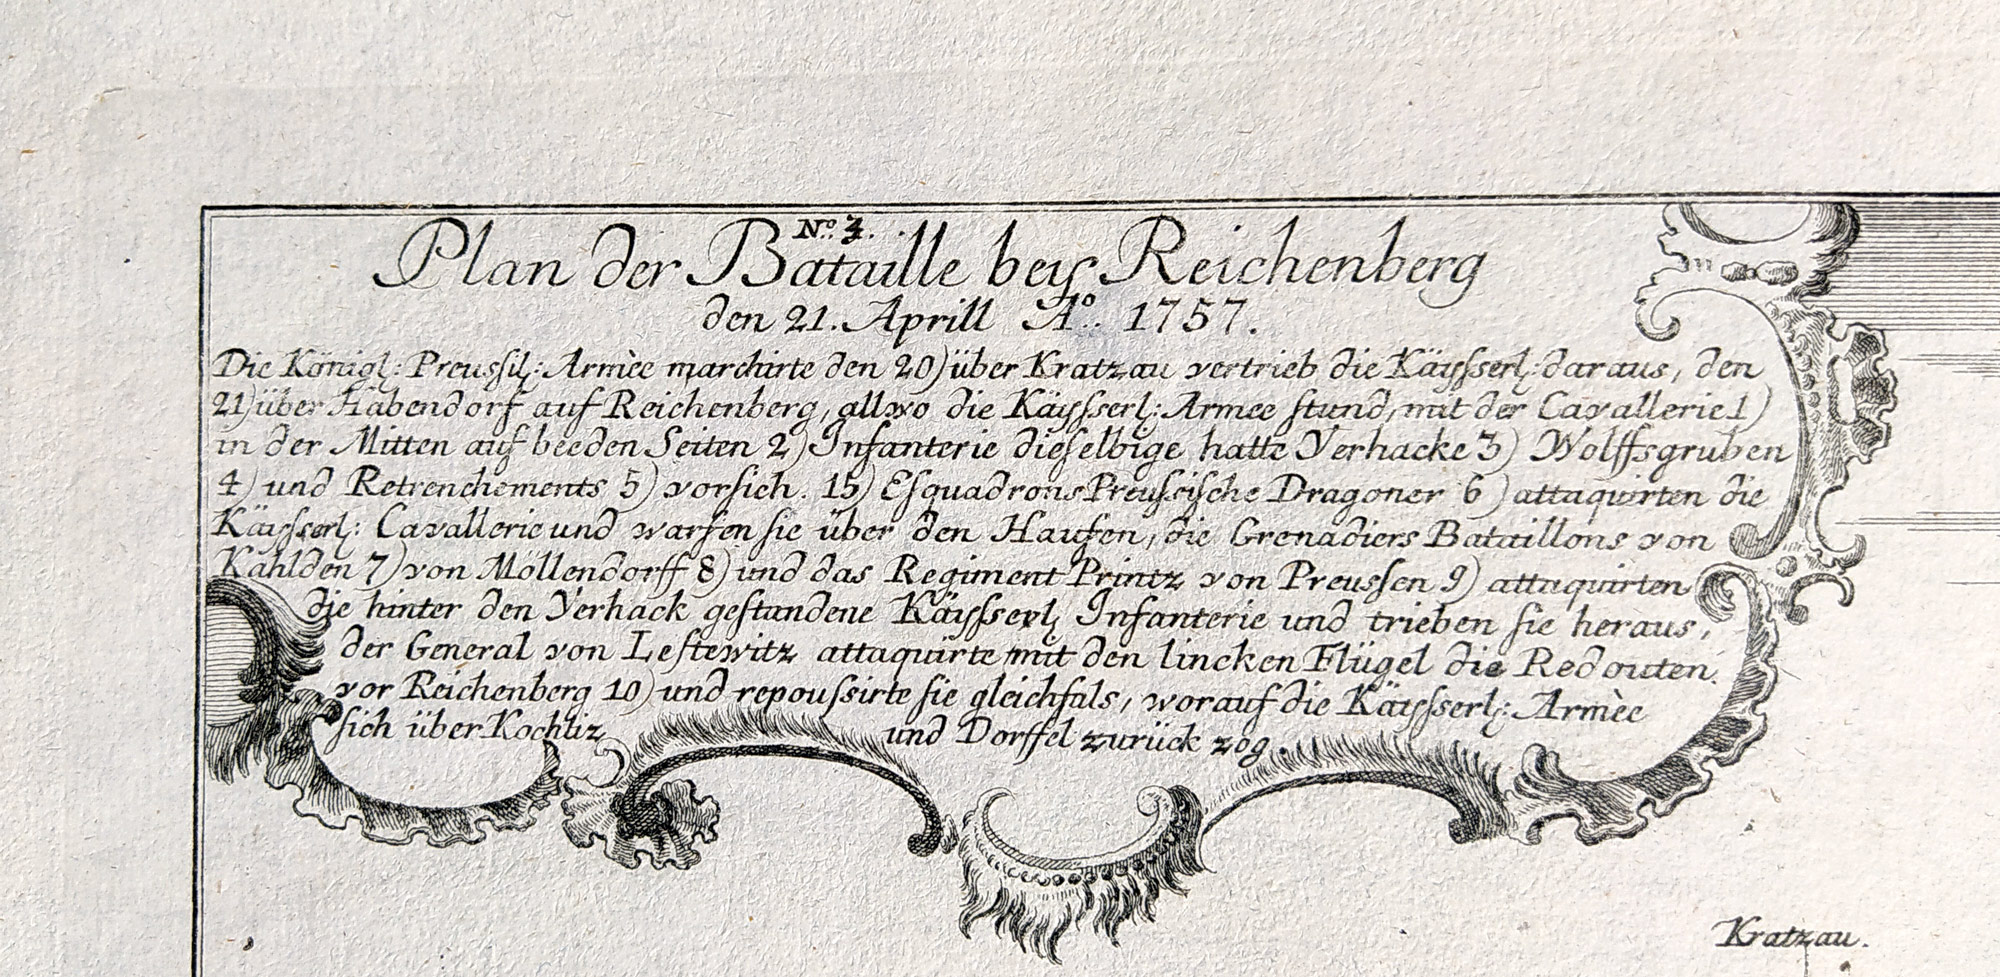 No. 3.
Plan der Bataille bey Reichenberg
den 21. Aprill Ao. 1757.
Die Königl: Preussil: Armèe marchirte den 20) über Kratzau vertrieb die Käysserl: daraus, den
21) über Habendorf auf Reichenberg, allwo die Käysserl: Armee stund, mit der Cavallerie 1)
in der Mitten auf beeden Seiten 2) Infanterie dieselbige hatte Verhacke 3) Wolffsgruben
4) und Retrenchements 5) vor sich. 15) Esquadrons Preussische Dragoner 6) attaquirten die
Käysserl: Cavallerie und warfen sie über den Haufen, die Grenadiers Bataillons von
Kahlden 7) von Möllendorff 8) und das Regiment Printz von Preussen 9) attaquirten
die hinter den Verhack gestandene Käysserl; Infanterie und trieben sie heraus,
der General von Lestewitz attaquirte mit den lincken Flügel die Redouten.
vor Reichenberg 10) und repoussirte sie gleichfals, worauf die Käysserl: Armèe
sich über Kochliz und Dorffel zurück zog.
Kratzau.